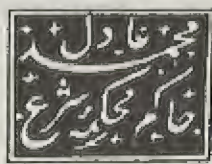 محمد عادل
حاکم محکمہ شرع